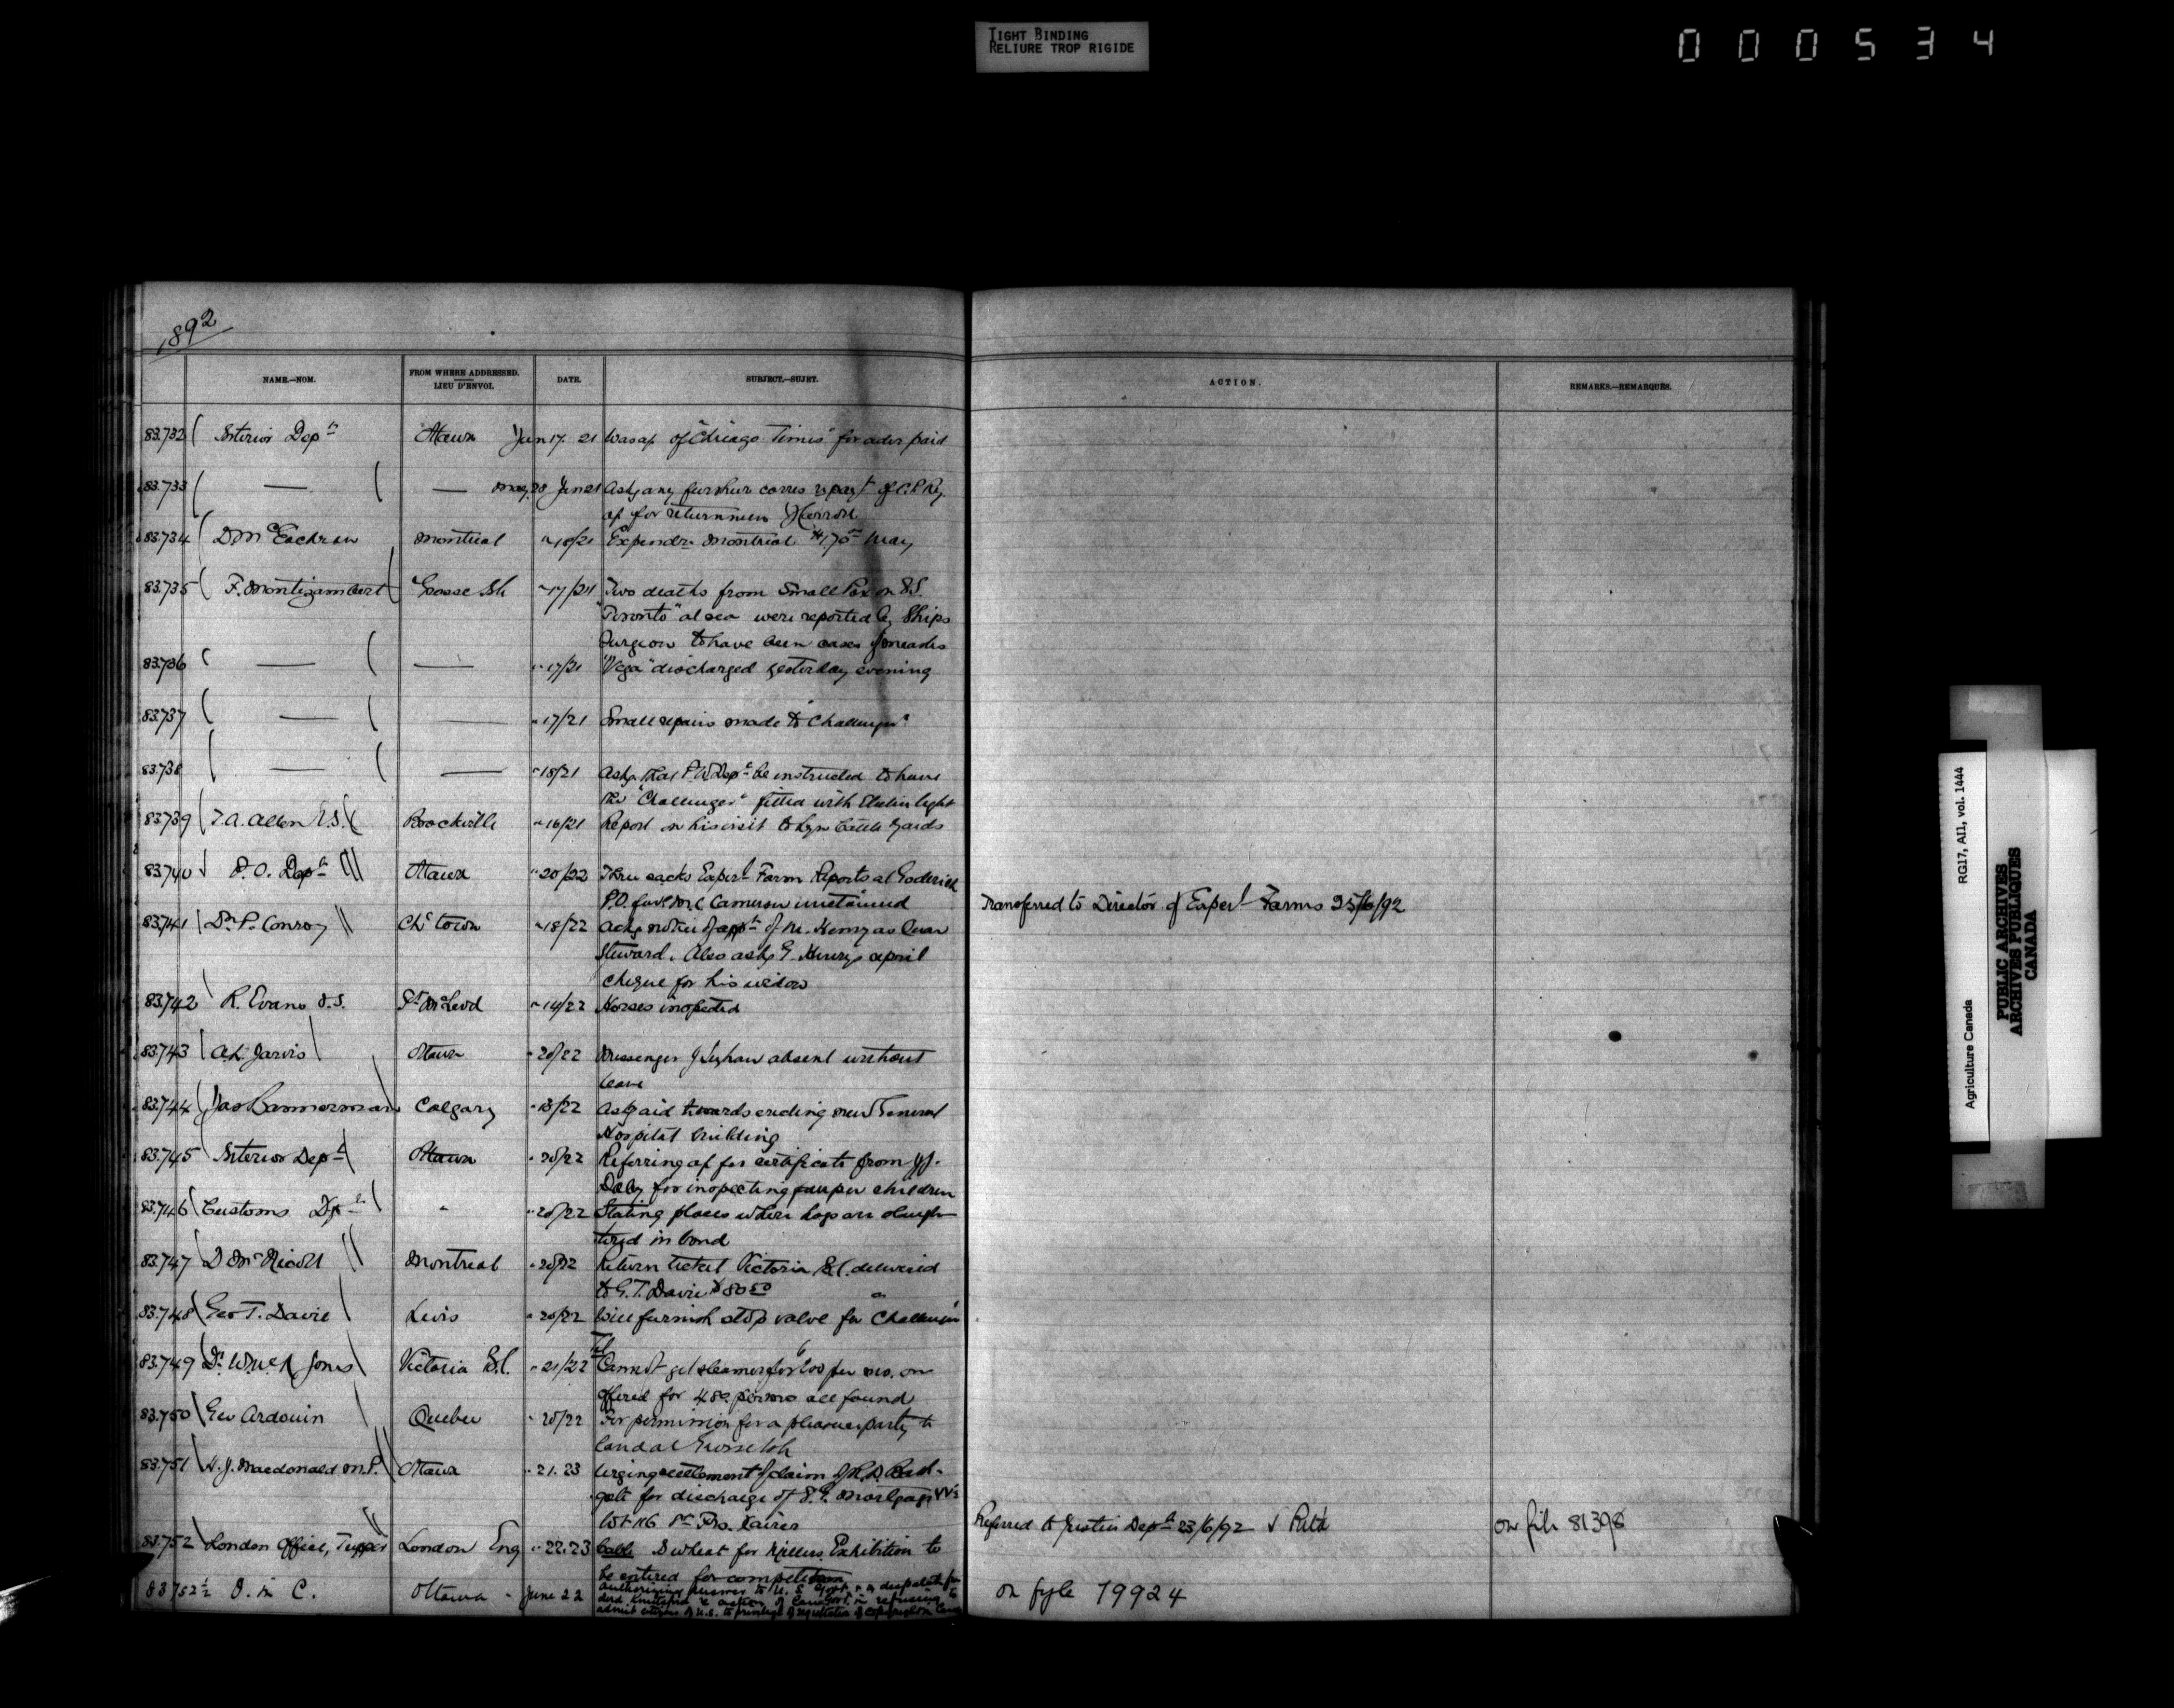 TIGHT BINDING
RELIURE TROP RIGIDE
000534
1892
NAME.—NOM.
FROM WHERE ADDRESSED.
LIEU D'ENVOI.
DATE.
SUBJECT.—SUJET.
ACTION.
REMARKS.—REMARQUES.
83.732 Interior Dept Ottawa Jun 17. 21 of "Chicago Times" for advr paid
83.733 — — May 28 Jun 21 Askg any further corres of C.P. Ry
for
83.734 D McEachran Montreal " 18/21 Expendre Montreal May
83.735 F. Montizambert Grosse Isle " 17/21 Two deaths from Small Pox on S.S.
"Toronto" at sea were reported by Ships
Surgeon to have been cases of measles
83.736 — — " 17/21 "Vega" discharged yesterday evening
83.737 — — " 17/21 Small repairs made to "Challenger"
83.738 — — " 18/21 Askg that P.W. Dept be instructed to have
the "Challenger" fitted with Electric light
83.739 T.A. Allen V.S. Brockville " 16/21 Report on his visit to Lyn Cattle Yards
83.740 P.O. Dept Ottawa " 20/22 Three sacks Experl Farm Reports at Goderich
P.O. for M.C. Cameron
Transferred to Director of Experl Farms 25/6/92
83.741 Dr P. Conroy Chctown " 18/22 Ackg notice of appt of M. Henry as Quar
Steward. Also askg G. Henry's April
cheque for his widow
83.742 R. Evans V.S. Ft McLeod " 14/22 Horses inspected
83.743 A.L. Jarvis Ottawa " 20/22 Messenger J absent without
leave
83.744 Jas Bannerman Calgary " 13/22 Askg aid towards erecting new General
Hospital building
83.745 Interior Dept Ottawa " 20/22 Referring ap for certificate from J.J.
Daly for inspecting pauper children
83.746 Customs Dept " " 20/22 Stating places where hogs are slaugh-
tered in bond
83.747 D McNicoll Montreal " 20/22 Return ticket Victoria B.C. delivered
to G.T. Davie $80.50
83.748 Geo T. Davie Levis " 20/22 Will furnish stop valve for "Challenger"
83.749 Dr W. McN Jones Victoria B.C. " 21/22 Tel Cannot get steamer for 600 per mo. one
offered for 480 per mo all found
83.750 Geo Ardouin Quebec " 20/22 For permission for a pleasure party to
land at Grosse Isle
83.751 H.J. Macdonald M.P. Ottawa " 21. 23 Urging settlement of claim of R.D.
for discharge of S.G. Mortgage
Lot 116 Xavier
Referred to Justice Dept 23/6/92 on file 81398
83.752 London Office, Tupper London Eng " 22.23 Cable wheat for Millers Exhibition to
be entered for competition
83752½ O. in C. Ottawa - June 22 authorizing answer to U.S. Govt despatch
action of Can Govt in refusing to
admit citizens of U.S. to privilege of registration of copyright in
on fyle 79924
RG17, AI1, vol. 1444
Agriculture Canada
PUBLIC ARCHIVES
ARCHIVES PUBLIQUES
CANADA